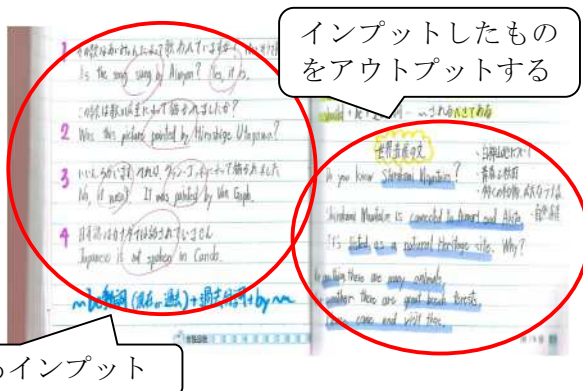 インプットしたもの
をアウトプットする
1
Is the song sung by Aimyon? Yes, it is.
この絵は歌川広重によって描かれましたか?
2 Was this picture painted by Hiroshige Utagawa?
3 いいえ、ちがいます。それは、ヴァン・ゴッホによって描かれました
No, it wasn't. It was painted by Van Gogh.
4 日本語はカナダでは話されていません
Japanese is not spoken in Canada.
~be動詞(現在or過去)+過去分詞+by~
世界遺産の文
Do you know Shirakami Mountain?
Shirakami Mountain is connected to Aomori and Akita
It's listed as a natural heritage site. Why?
there are many animals.
there are great beech forests.
Please come and visit there.
インプット